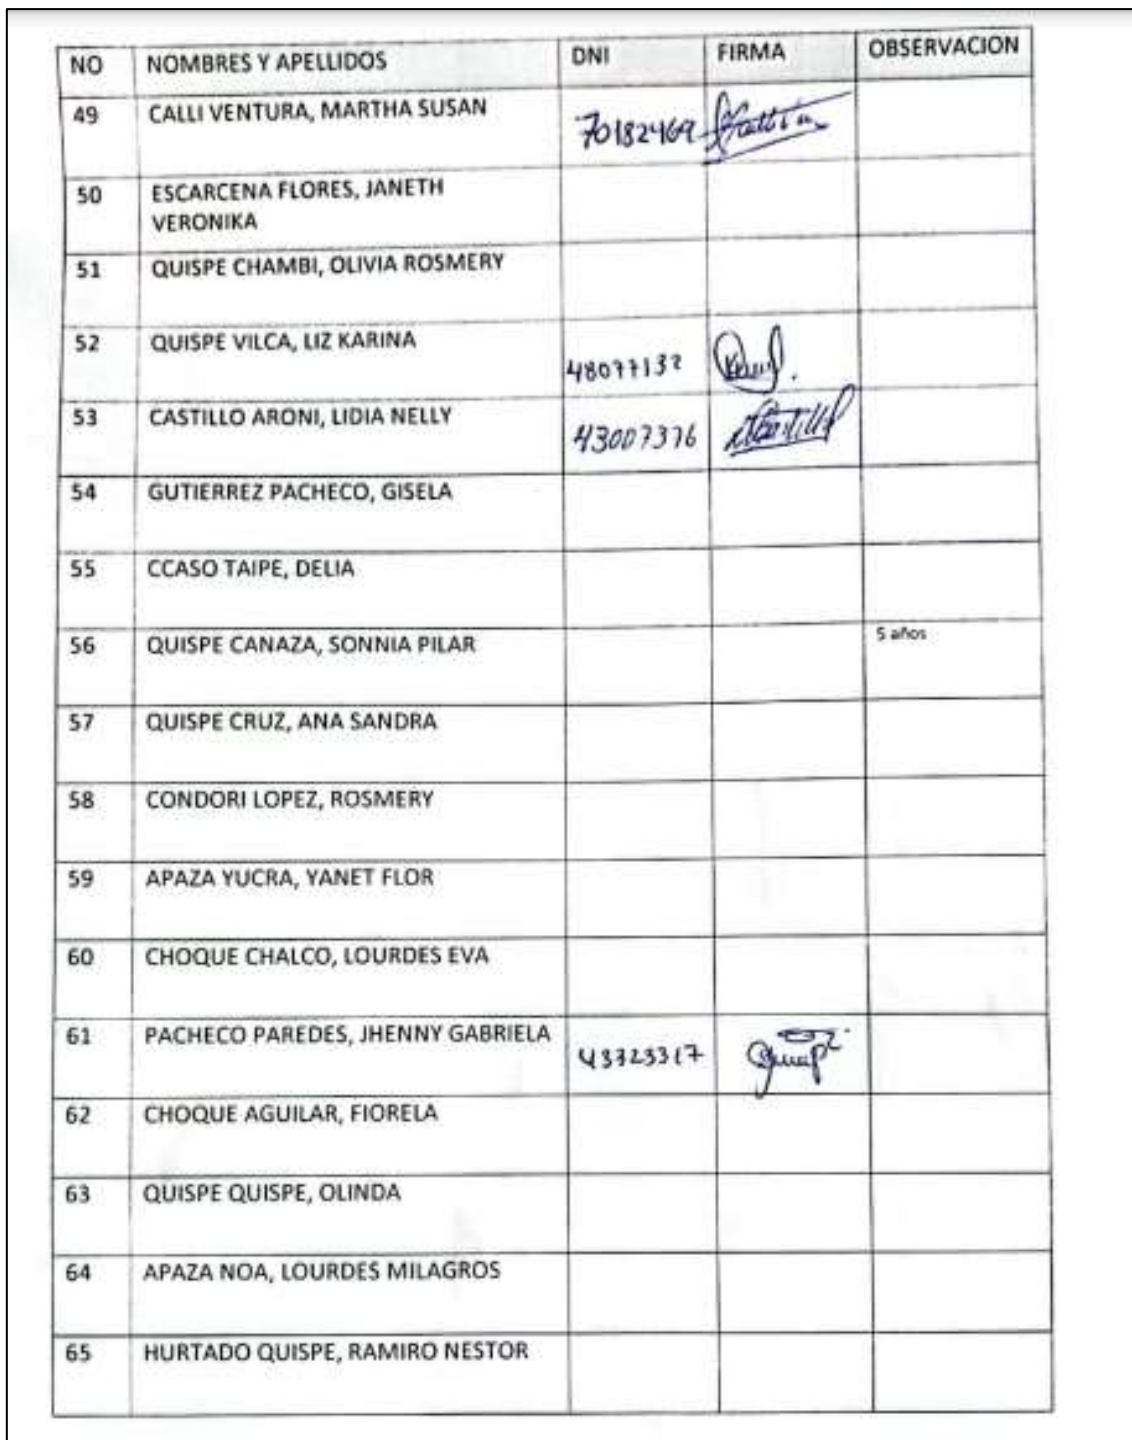 NO NOMBRES Y APELLIDOS DNI FIRMA OBSERVACION
49 CALLI VENTURA, MARTHA SUSAN 70182469
50 ESCARCENA FLORES, JANETH
VERONIKA
51 QUISPE CHAMBI, OLIVIA ROSMERY
52 QUISPE VILCA, LIZ KARINA 48077132
53 CASTILLO ARONI, LIDIA NELLY 43007376
54 GUTIERREZ PACHECO, GISELA
55 CCASO TAIPE, DELIA
56 QUISPE CANAZA, SONNIA PILAR 5 años
57 QUISPE CRUZ, ANA SANDRA
58 CONDORI LOPEZ, ROSMERY
59 APAZA YUCRA, YANET FLOR
60 CHOQUE CHALCO, LOURDES EVA
61 PACHECO PAREDES, JHENNY GABRIELA 43323317
62 CHOQUE AGUILAR, FIORELA
63 QUISPE QUISPE, OLINDA
64 APAZA NOA, LOURDES MILAGROS
65 HURTADO QUISPE, RAMIRO NESTOR